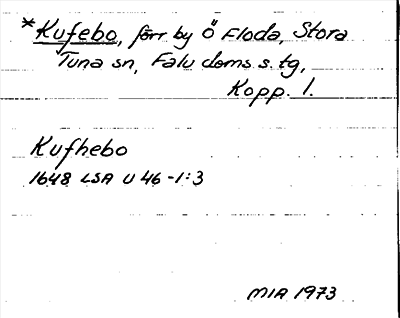 *Kufebo, förr by Ö Floda, Stora
Tuna sn, Falu doms. s. tg,
Kopp. l.
Kufhebo
1648 LSA U 46-1:3
MIA 1973